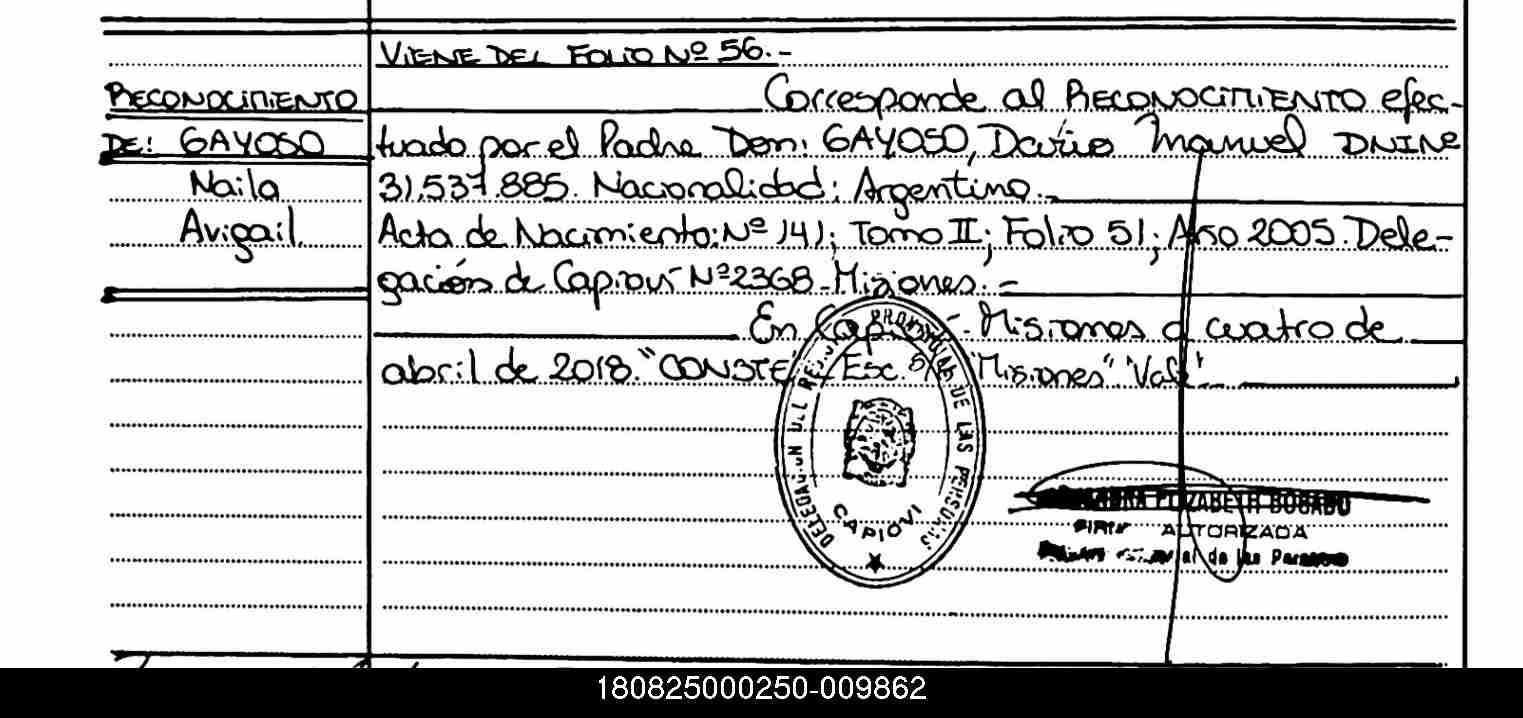 VIENE DEL FOLIO Nº 56.-
RECONOCIMIENTO
DE: GAYOSO
Naila
Avigail.
Corresponde al RECONOCIMIENTO efec-
tuado por el Padre Don: GAYOSO, Darío Manuel DNI Nº
31.537.885. Nacionalidad: Argentino.-
Acta de Nacimiento: Nº 141; Tomo II; Folio 51; Año 2005. Dele-
gación de Capioví Nº 2368 - Misiones.-
En Capioví - Misiones a cuatro de
abril de 2018. "CONSTE" Esc. s/r "Misiones" "Vale"
DELEGACION DEL REG. PROVINCIAL DE LAS PERSONAS
CAPIOVI
ELIZABETH BOBADO
FIRMA AUTORIZADA
de las Personas
180825000250-009862